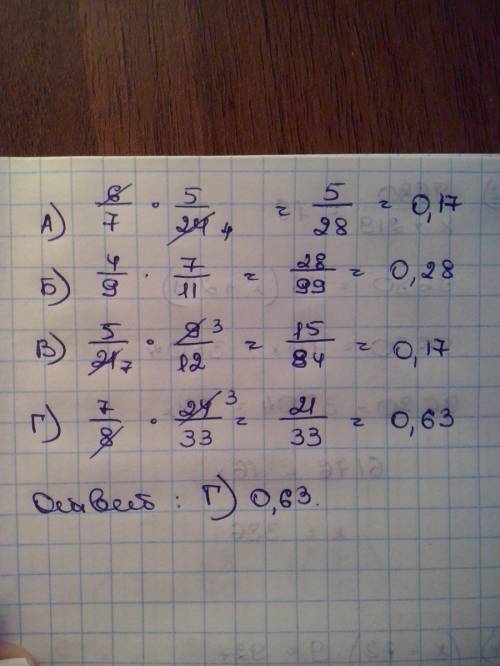 А) 6/7 · 5/24 4 = 5/28 = 0,17
Б) 4/9 · 7/11 = 28/99 = 0,28
В) 5/21 7 · 9 3/12 = 15/84 = 0,17
Г) 7/8 · 24 3/33 = 21/33 = 0,63
Ответ : Г) 0,63.